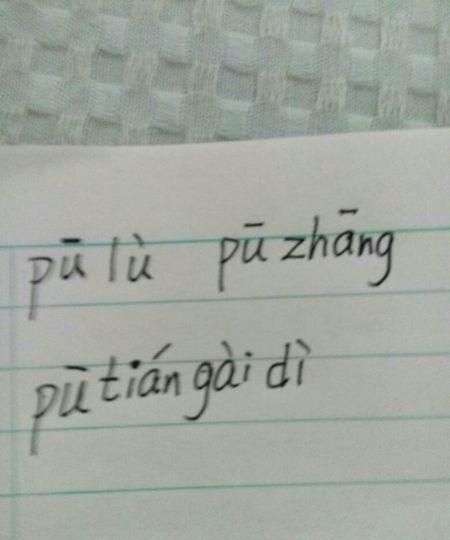 pū lù pū zhāng
pū tián gài dì